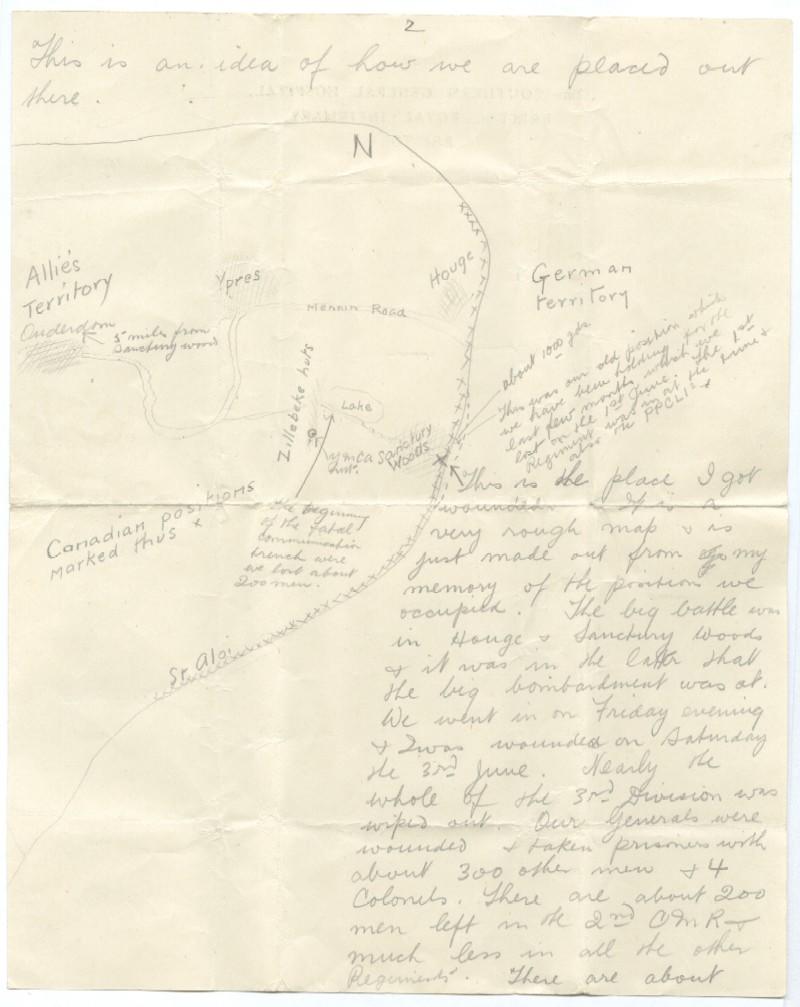 2
This is an idea of how we are placed out
there.
N
Allie's
Territory
Ouderdom
5 miles from
Sanctury wood
Ypres
Mennin Road
Houge
German
territory
about 1000 yds
This was our old position which
we have been holding for the
last few months which we
lost on the 1st June. The 1st
Regiment was in at the time &
also the PPCLI's
Zillebeke huts
Lake
YMCA
hut.
Sanctury
Woods
Canadian positions
marked thus x
The beginning
of the fatal
communication
trench were
we lost about
200 men.
St. Aloi
This is the place I got
wounded. It is a
very rough map & is
just made out from my
memory of the position we
occupied. The big battle was
in Houge & Sanctury Woods
& it was in the latter that
the big bombardment was at.
We went in on Friday evening
& I was wounded on Saturday
the 3rd June. Nearly the
whole of the 3rd Division was
wiped out. Our Generals were
wounded & taken prisoners with
about 300 other men & 4
Colonels. There are about 200
men left in the 2nd CMR &
much less in all the other
Regiments. There are about